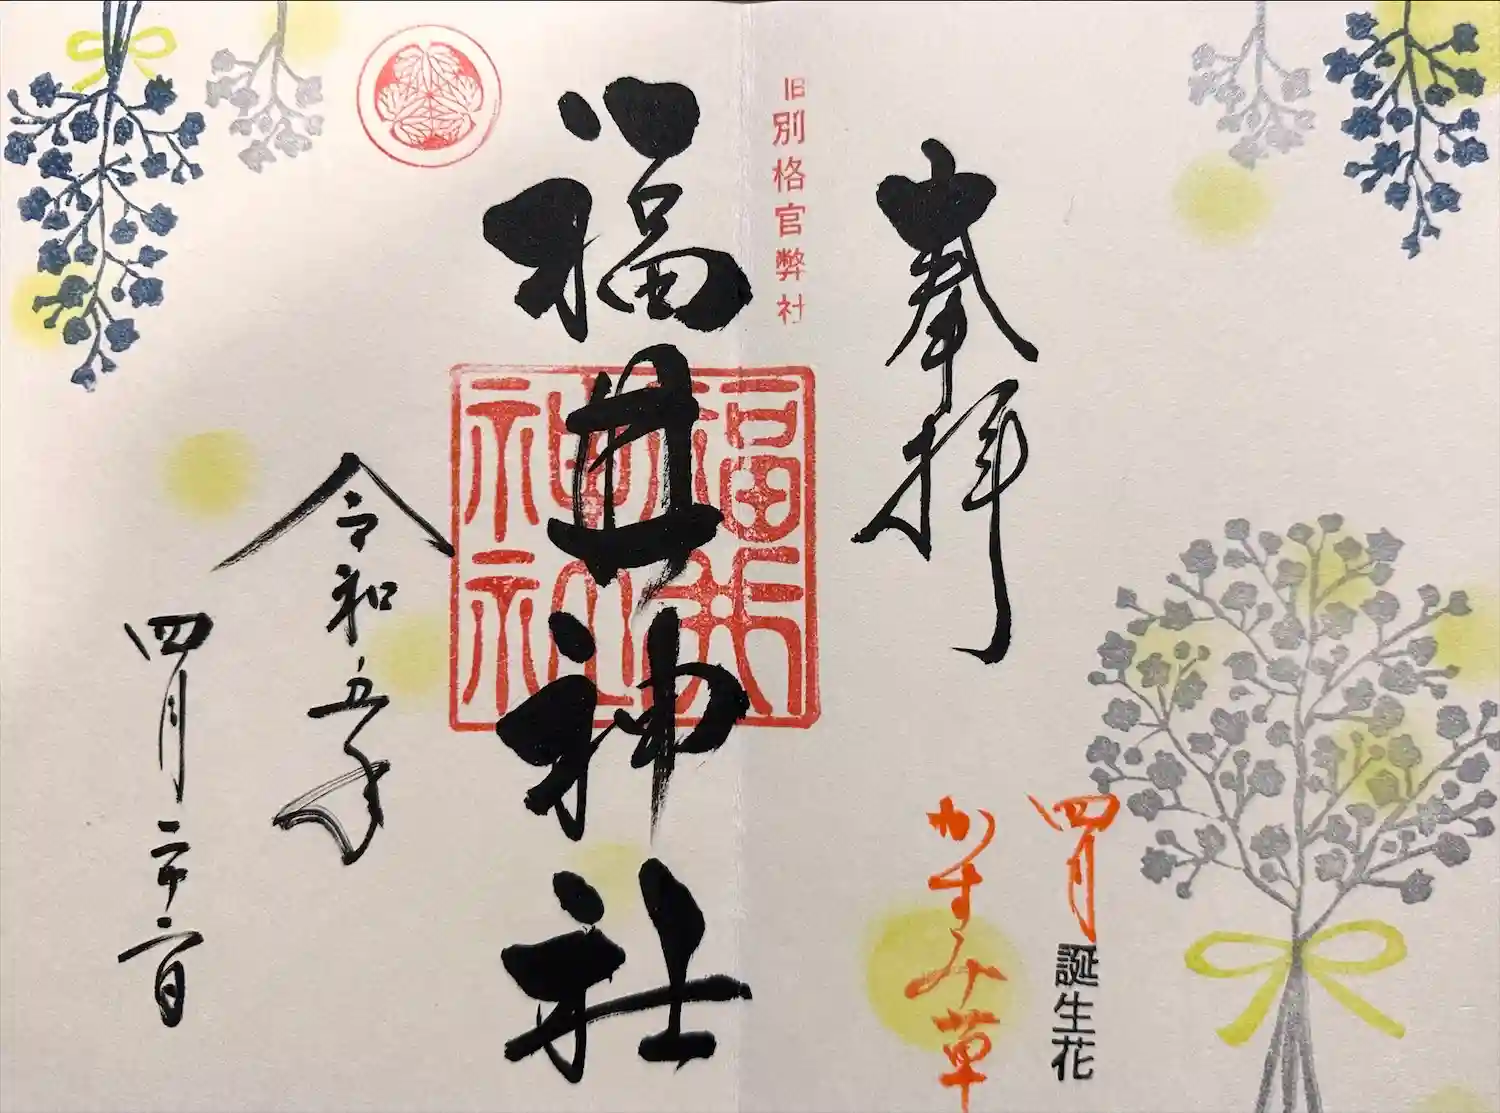 奉拝
四月誕生花
かすみ草
旧別格官弊社
福井神社
福井
神社
令和五年
四月二十六日